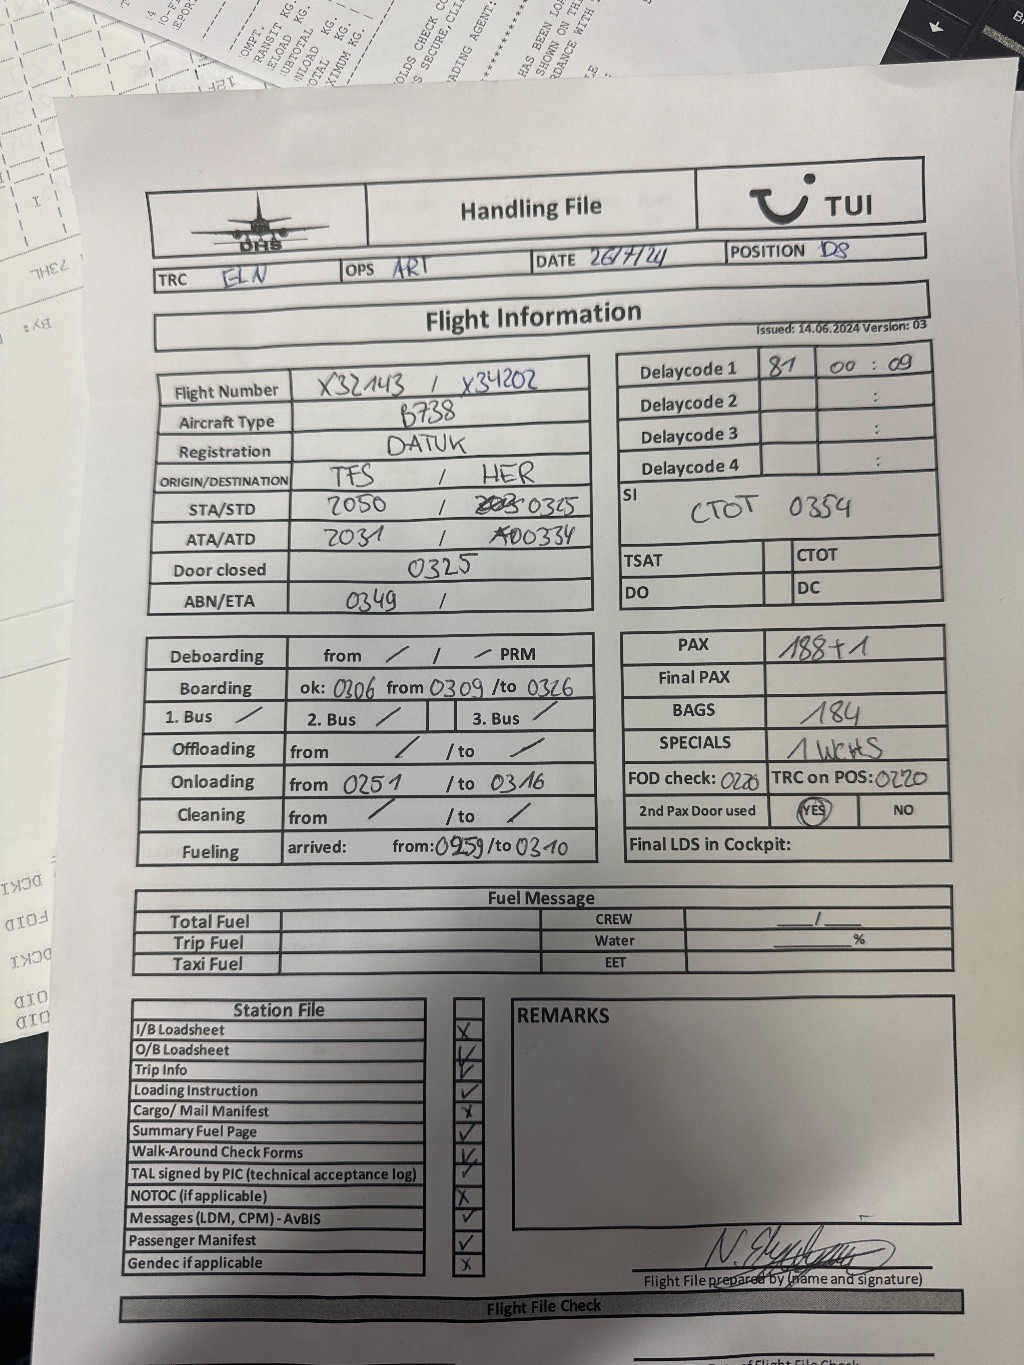 OMPT.
RANSIT KG.
ELOAD KG.
UBTOTAL KG.
NLOAD KG.
OTAL KG.
XIMUM KG.
OLDS CHECK CO
S SECURE, CLI
ADING AGENT:
HAS BEEN LOA
SHOWN ON TH
RDANCE WITH
73HL
BY:
DHS
Handling File
TUI
TRC ELN OPS ART DATE 26/7/24 POSITION D8
Flight Information
Issued: 14.06.2024 Version: 03
Flight Number X32143 / X34202
Aircraft Type B738
Registration DATUK
ORIGIN/DESTINATION TFS / HER
STA/STD 2050 / 0325
ATA/ATD 2031 / 0334
Door closed 0325
ABN/ETA 0349 /
Delaycode 1 81 00 : 09
Delaycode 2 :
Delaycode 3 :
Delaycode 4 :
SI
CTOT 0354
TSAT CTOT
DO DC
Deboarding from / / / PRM
Boarding ok: 0306 from 0309 /to 0326
1. Bus / 2. Bus / 3. Bus /
Offloading from / / to /
Onloading from 0251 / to 0316
Cleaning from / / to /
Fueling arrived: from: 0259 /to 0310
PAX 188+1
Final PAX
BAGS 184
SPECIALS 1 WCHS
FOD check: 0220 TRC on POS: 0220
2nd Pax Door used YES NO
Final LDS in Cockpit:
Fuel Message
Total Fuel CREW ___/___
Trip Fuel Water ______%
Taxi Fuel EET
Station File
I/B Loadsheet X
O/B Loadsheet ✓
Trip Info ✓
Loading Instruction ✓
Cargo/ Mail Manifest X
Summary Fuel Page ✓
Walk-Around Check Forms ✓
TAL signed by PIC (technical acceptance log) ✓
NOTOC (if applicable) X
Messages (LDM, CPM) - AvBIS ✓
Passenger Manifest ✓
Gendec if applicable X
REMARKS
Flight File prepared by (name and signature)
Flight File Check
of Flight File Check